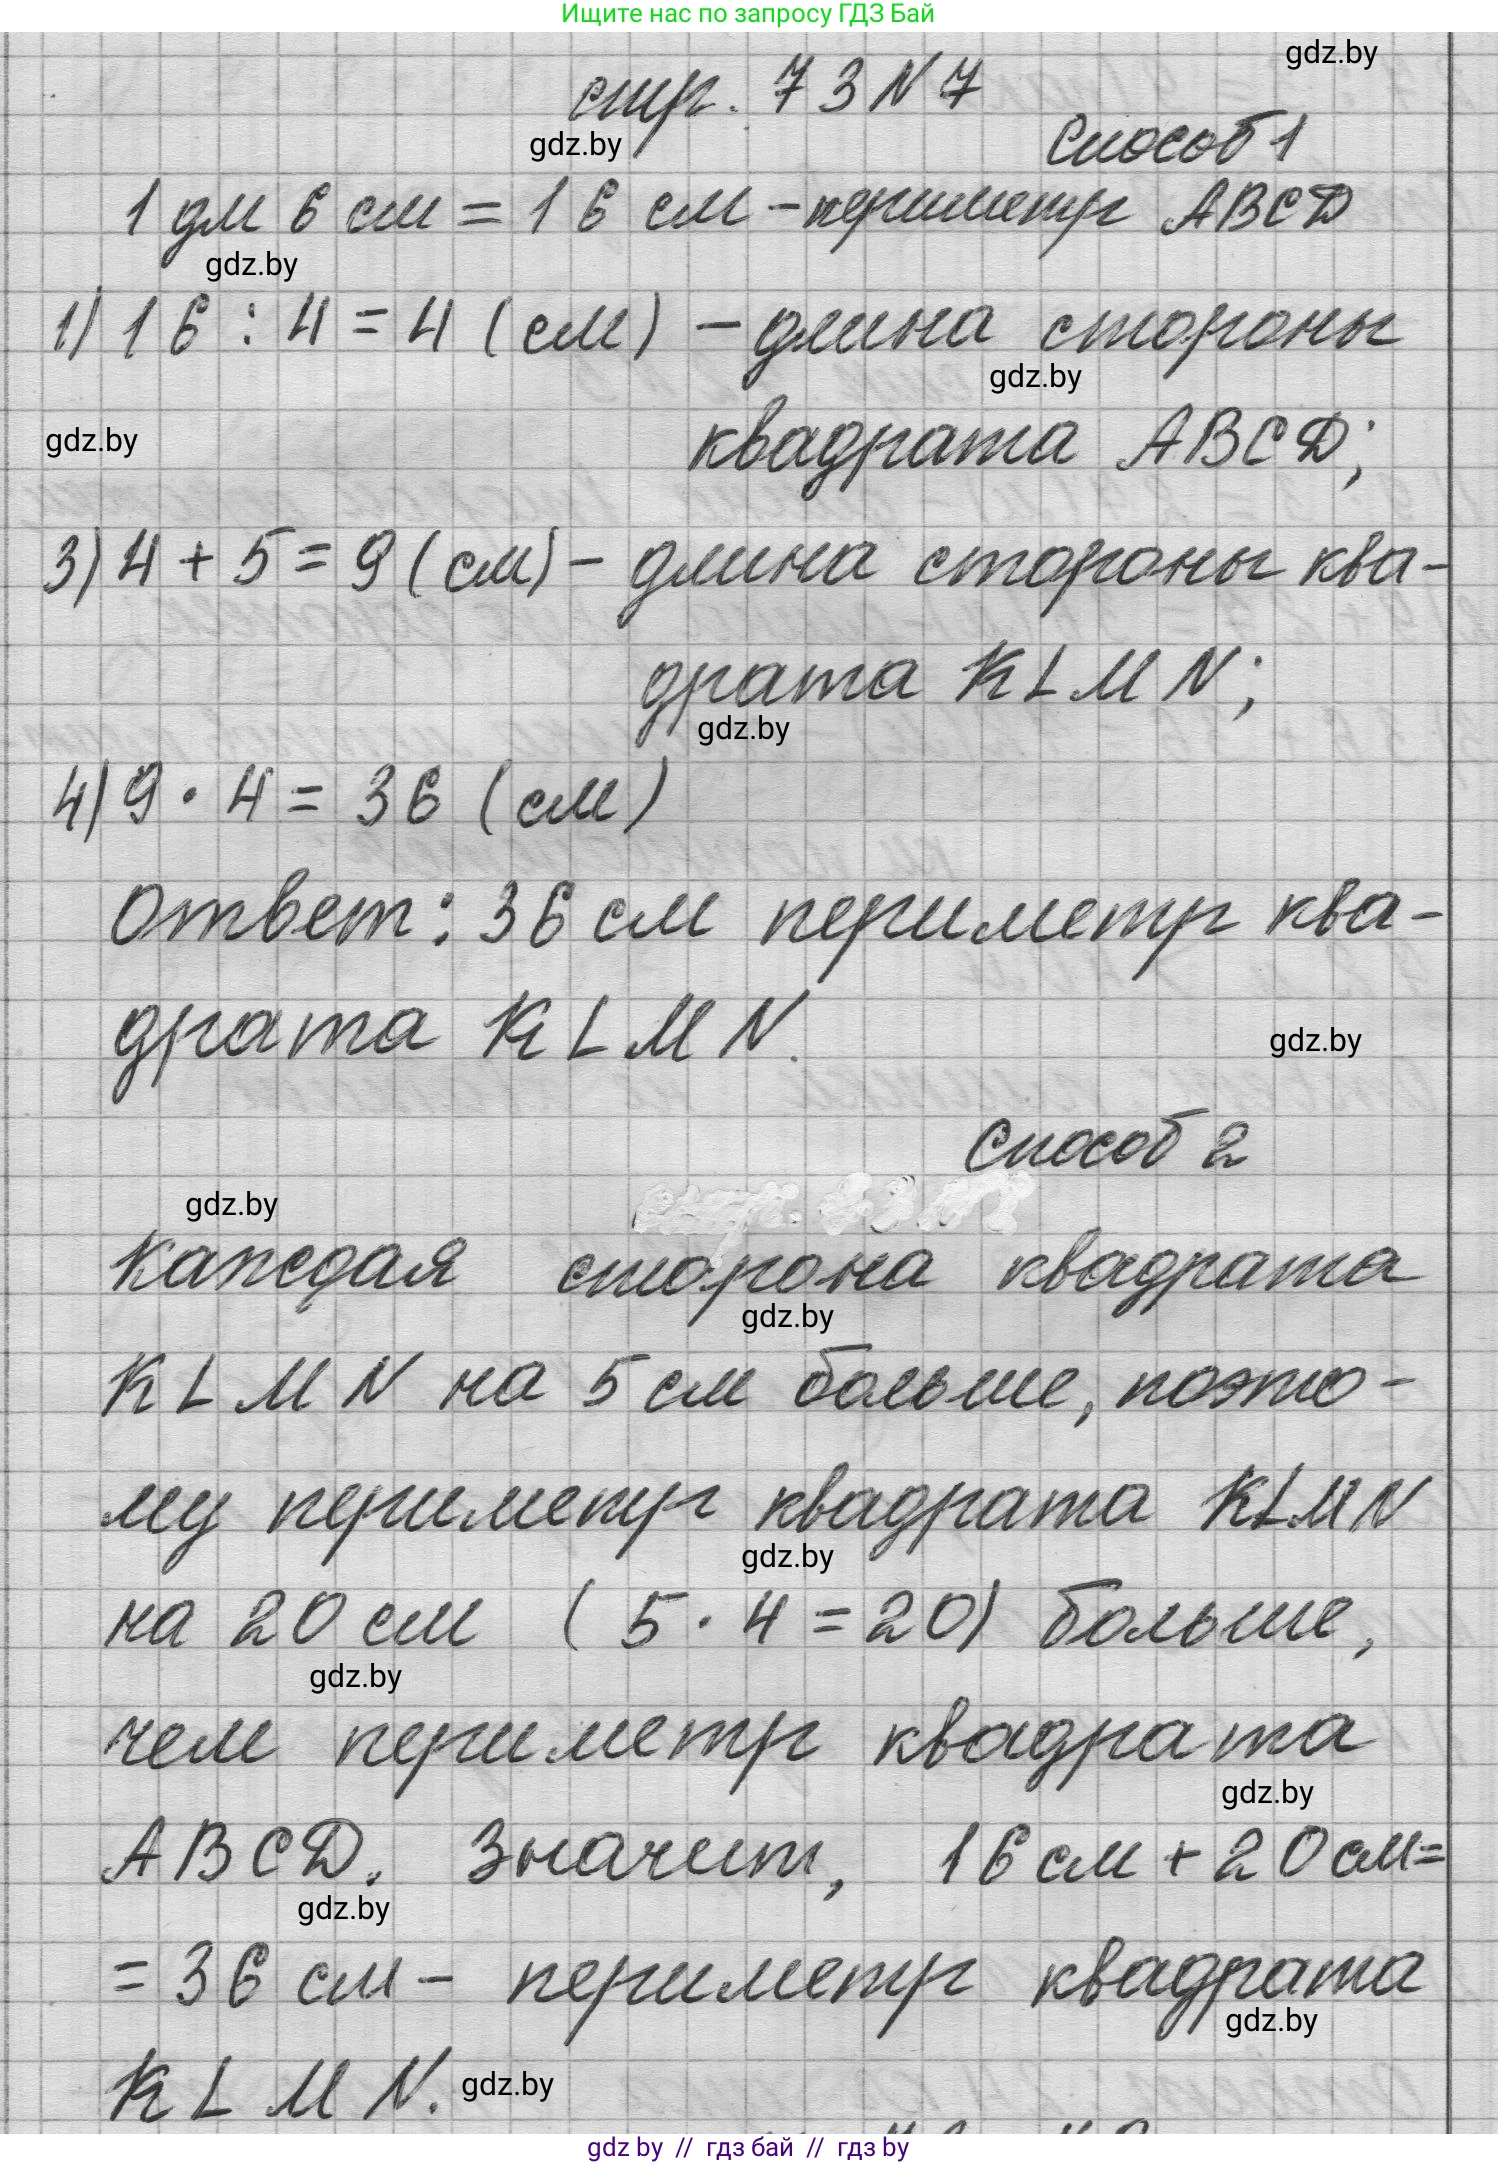 Ищите нас по запросу ГДЗ Бай
gdz.by
стр. 73 N 7
gdz.by
Способ 1
1 дм 6 см = 16 см - периметр ABCD
gdz.by
1) 16 : 4 = 4 (см) - длина стороны
gdz.by
квадрата ABCD;
gdz.by
3) 4 + 5 = 9 (см) - длина стороны ква-
драта KLMN;
gdz.by
4) 9 · 4 = 36 (см)
Ответ: 36 см периметр ква-
драта KLMN.
gdz.by
Способ 2
gdz.by
Каждая сторона квадрата
gdz.by
KLMN на 5 см больше, поэто-
му периметр квадрата KLMN
gdz.by
на 20 см (5 · 4 = 20) больше,
gdz.by
чем периметр квадрата
gdz.by
ABCD. Значит, 16 см + 20 см =
gdz.by
= 36 см - периметр квадрата
gdz.by
KLMN.
gdz.by
gdz by // гдз бай // гдз by